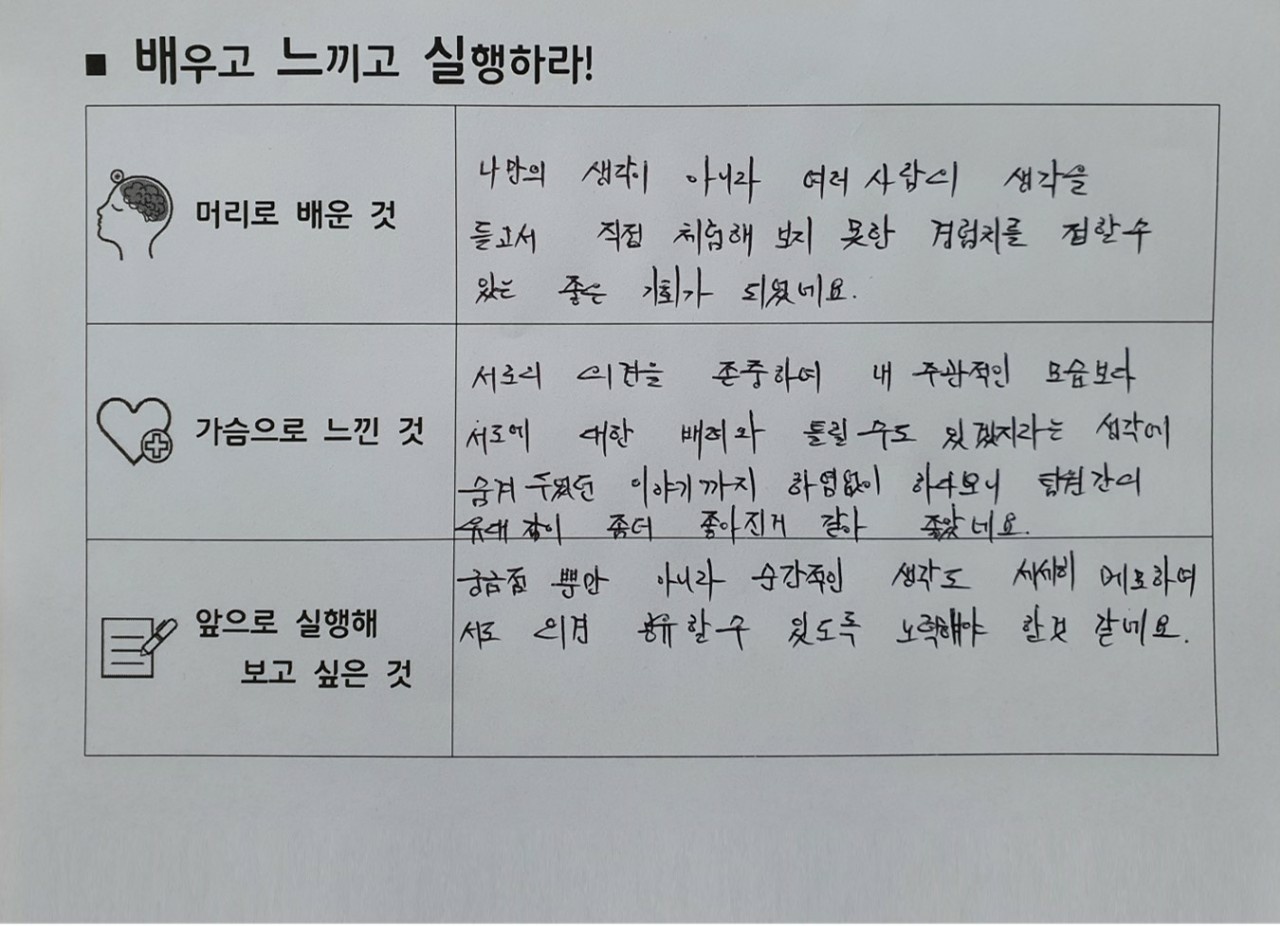 ■ 배우고 느끼고 실행하라!
머리로 배운 것
나만의 생각이 아니라 여러 사람의 생각을
듣고서 직접 체험해 보지 못한 경험치를 접할수
있는 좋은 기회가 되었네요.
가슴으로 느낀 것
서로의 의견을 존중하여 내 주관적인 모습보다
서로에 대한 배려와 틀릴 수도 있겠지라는 생각에
숨겨 두었던 이야기까지 하염없이 하다보니 팀원간의
유대감이 좀더 좋아진거 같아 좋았네요.
앞으로 실행해
보고 싶은 것
궁금점 뿐만 아니라 순간적인 생각도 세세히 메모하여
서로 의견 공유할수 있도록 노력해야 할것 같네요.